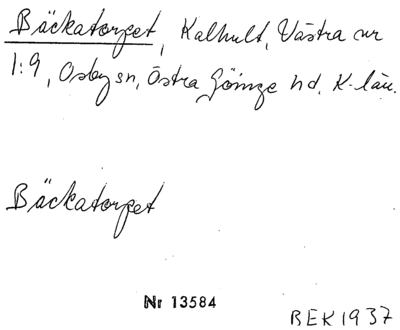 Bäckatorpet, Kalhult, Västra nr
1:9, Osby sn, Östra Göinge hd, K-län.
Bäckatorpet
Nr 13584
BEK 1937